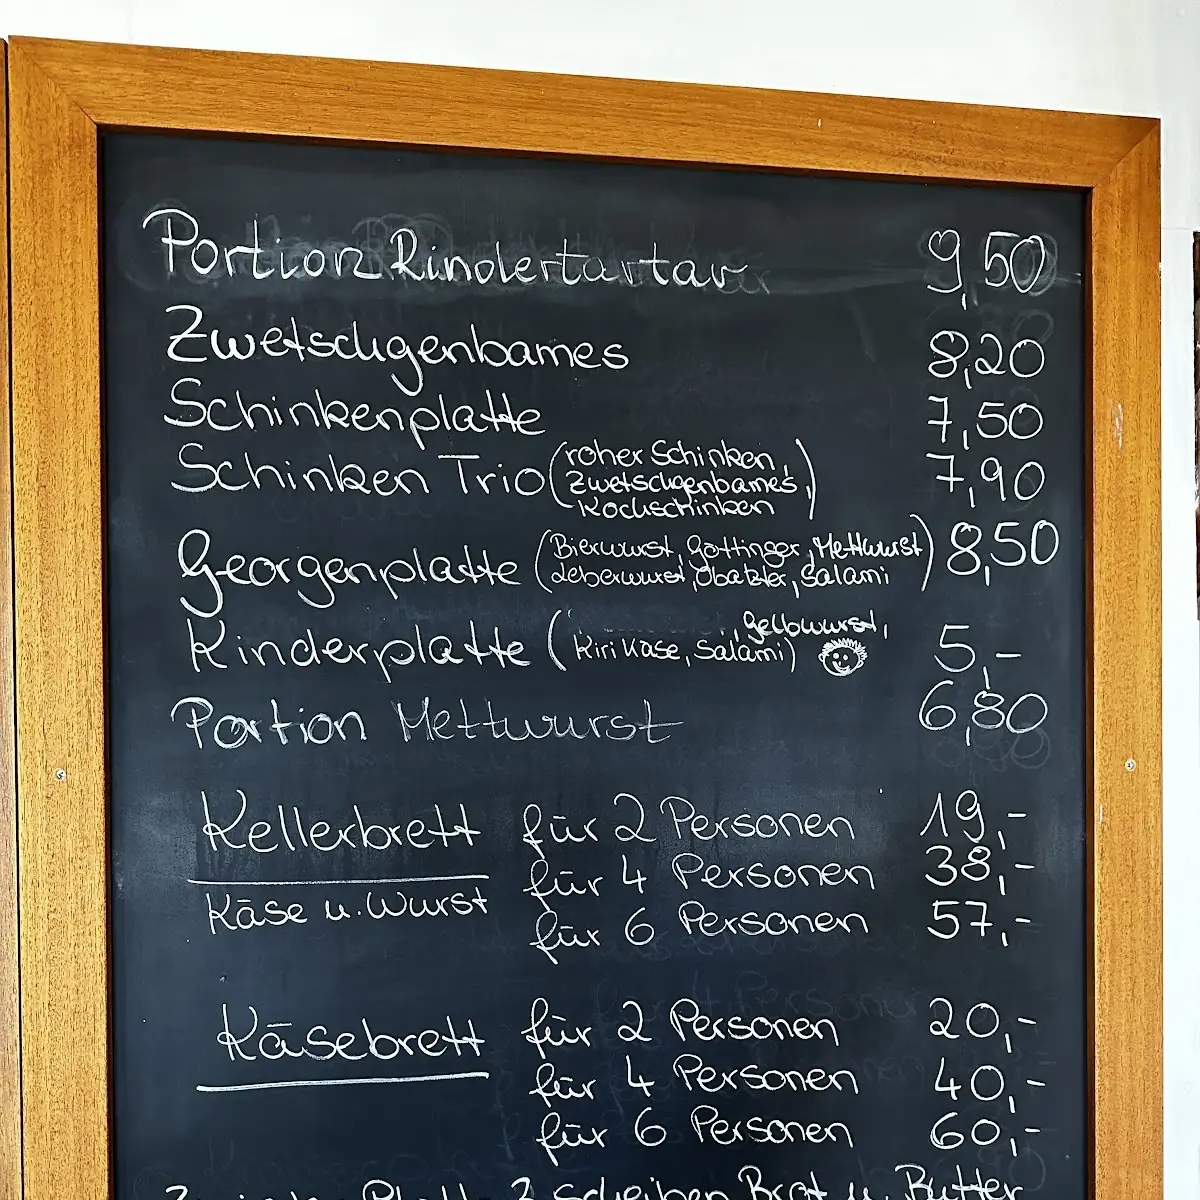 Portion Rindertartar 9,50
Zwetschgenbames 8,20
Schinkenplatte 7,50
Schinken Trio (roher Schinken, 7,90
Zwetschgenbames,
Kochschinken)
Georgenplatte (Bierwurst, Göttinger, Mettwurst 8,50
Leberwurst, Obatzter, Salami)
Gelbwurst,
Kinderplatte (Kiri Käse, Salami) 5,-
Portion Mettwurst 6,80
Kellerbrett für 2 Personen 19,-
für 4 Personen 38,-
Käse u. Wurst
für 6 Personen 57,-
Käsebrett für 2 Personen 20,-
für 4 Personen 40,-
für 6 Personen 60,-
2 Scheiben Brot u. Butter